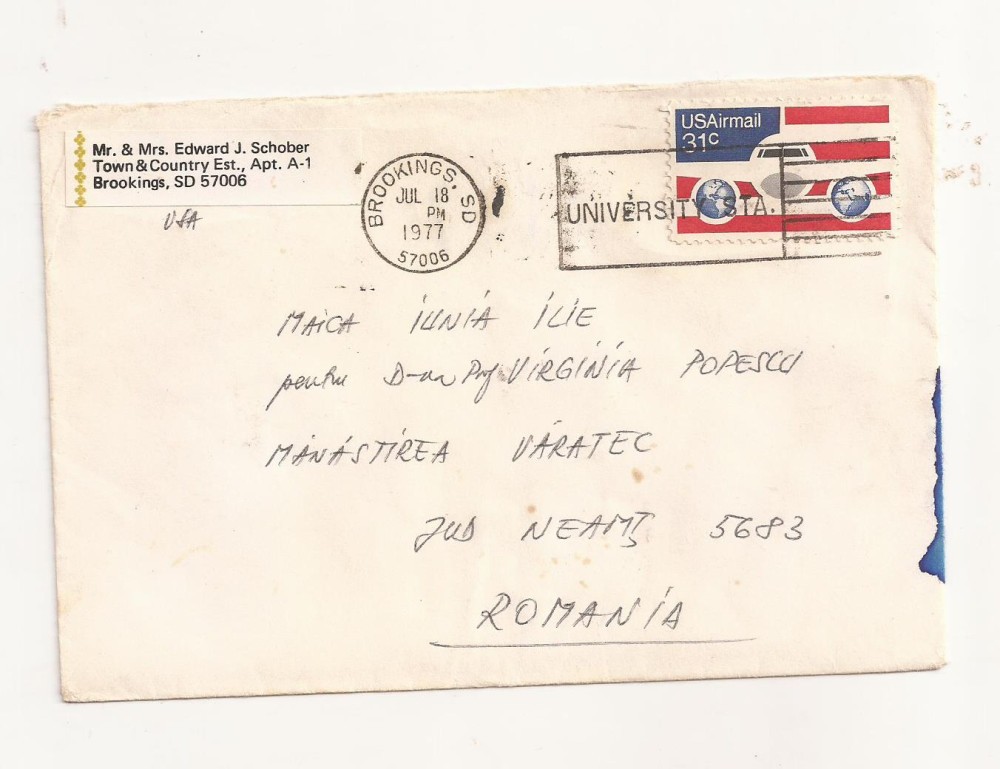 Mr. & Mrs. Edward J. Schober
Town & Country Est., Apt. A-1
Brookings, SD 57006
USA
BROOKINGS, SD
JUL 18
PM
1977
57006
UNIVERSITY STA.
USAirmail
31c
MAICA ILINIA ILIE
pentru D-na Prof VIRGINIA POPESCU
MÁNÁSTIREA VÁRATEC
JUD NEAMŢ 5683
ROMANIA